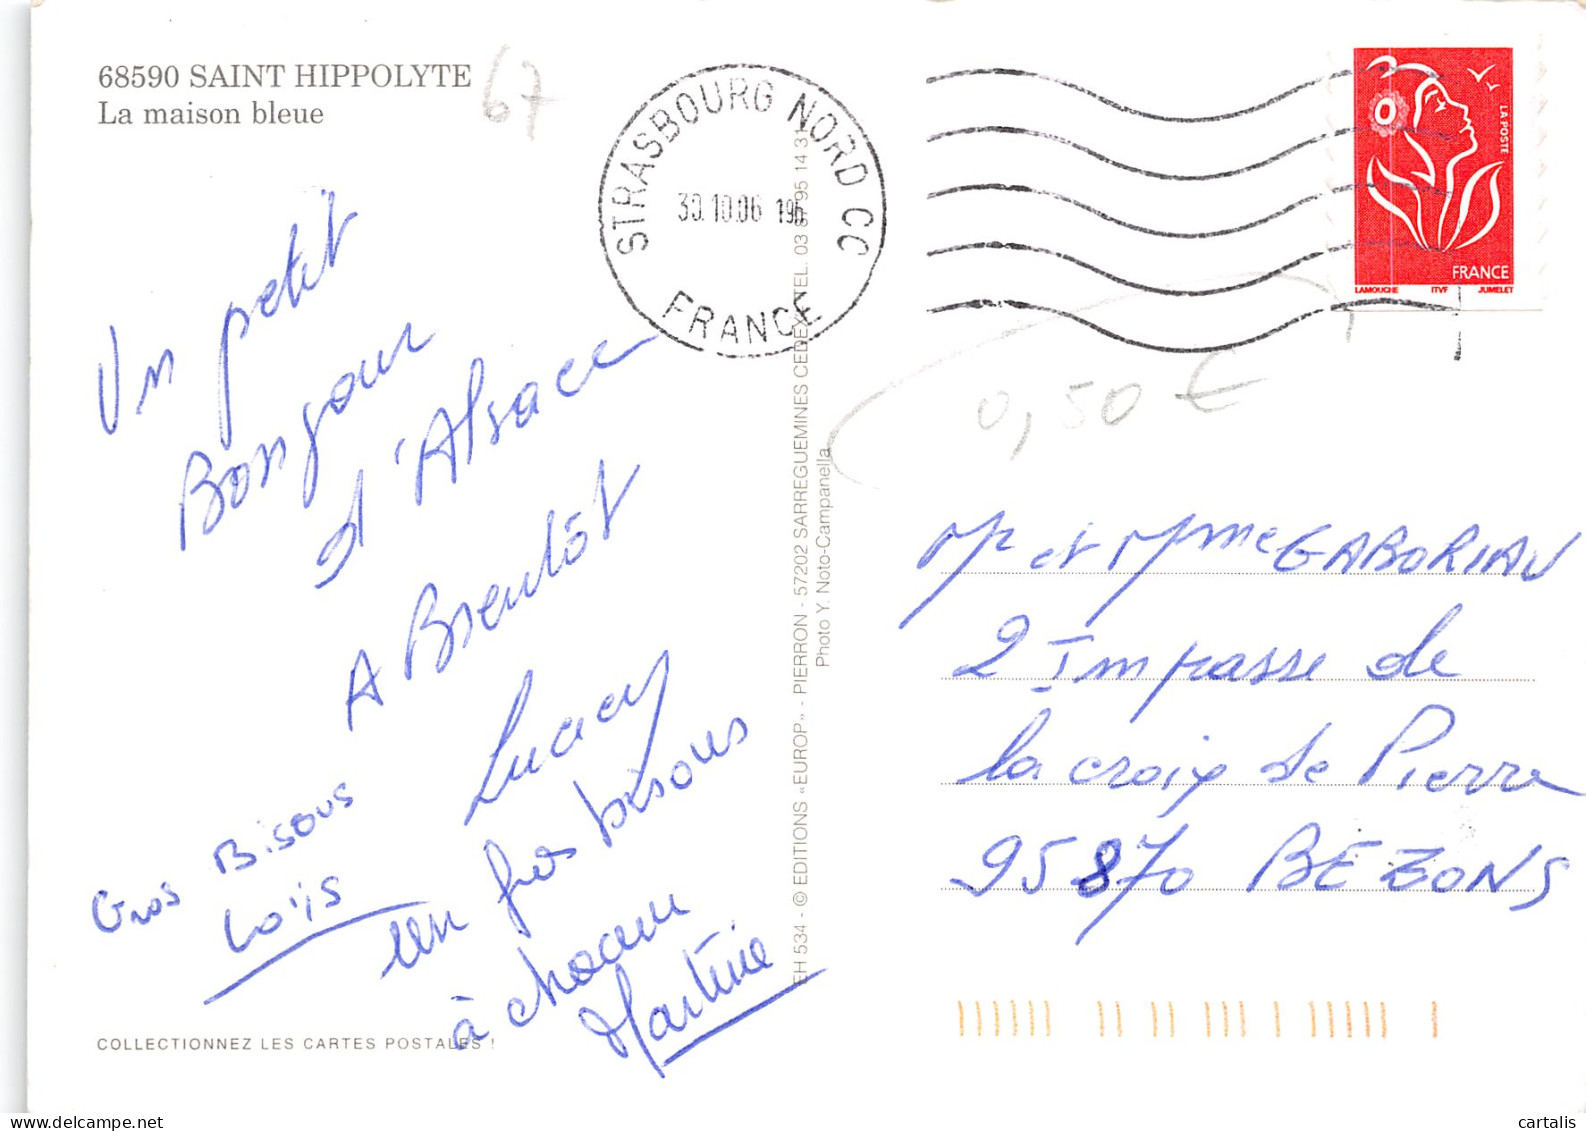 68590 SAINT HIPPOLYTE
La maison bleue
67
STRASBOURG NORD CC
30.10.06
FRANCE
LA POSTE
FRANCE
LAMOUCHE ITVF JUMELET
0,50 €
Un petit
Bonjour
d'Alsace
A Bientôt
Gros Bisous
Loïs
un gros bisous
à chacun
Martine
EH 534 - © EDITIONS «EUROP» - PIERRON - 57202 SARREGUEMINES CEDEX TEL. 03 87 95 14 31
Photo Y. Noto-Campanella
Mr et Mme GABORIAU
2 Impasse de
la croix de Pierre
95870 BEZONS
COLLECTIONNEZ LES CARTES POSTALES !
cartalis